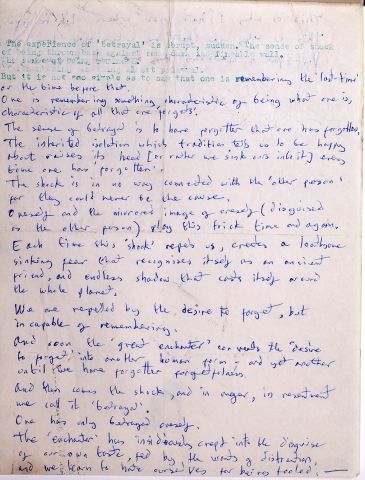 The experience of 'betrayal' is abrupt, sudden. The sense of shock
of being thrown back against
But it is not so simple as to say that one is remembering the 'last time'
or the time before that.
One is remembering something characteristic of being what one is,
characteristic of all that one forgets'.
The sense of betrayal is to have forgotten that one has forgotten.
The inherited isolation which tradition tells us to be happy
about raises its head [or rather we sink ours into it] every
time one has 'forgotten'.
The shock is in no way connected with the 'other person'
for they could never be the cause.
Oneself and the mirrored image of oneself (disguised
as the other person) play this trick time and again.
Each time this 'shock' repels us, creates a loathsome
sinking fear that recognises itself as an ancient
friend, and endless shadow that casts itself around
the whole planet.
We are repelled by the desire to forget, but
incapable of remembering.
And soon the 'great enchanter' converts the 'desire
to forget' into another human form - and yet another
until we have forgotten forgetfulness.
And then comes the shock, and in anger, in resentment
we call it 'betrayal'.
One has only betrayed oneself.
The 'Enchanter' has insidiously crept into the disguise
of our own taste, fed by the wants of distraction,
and we learn to hate ourselves for being fooled. —